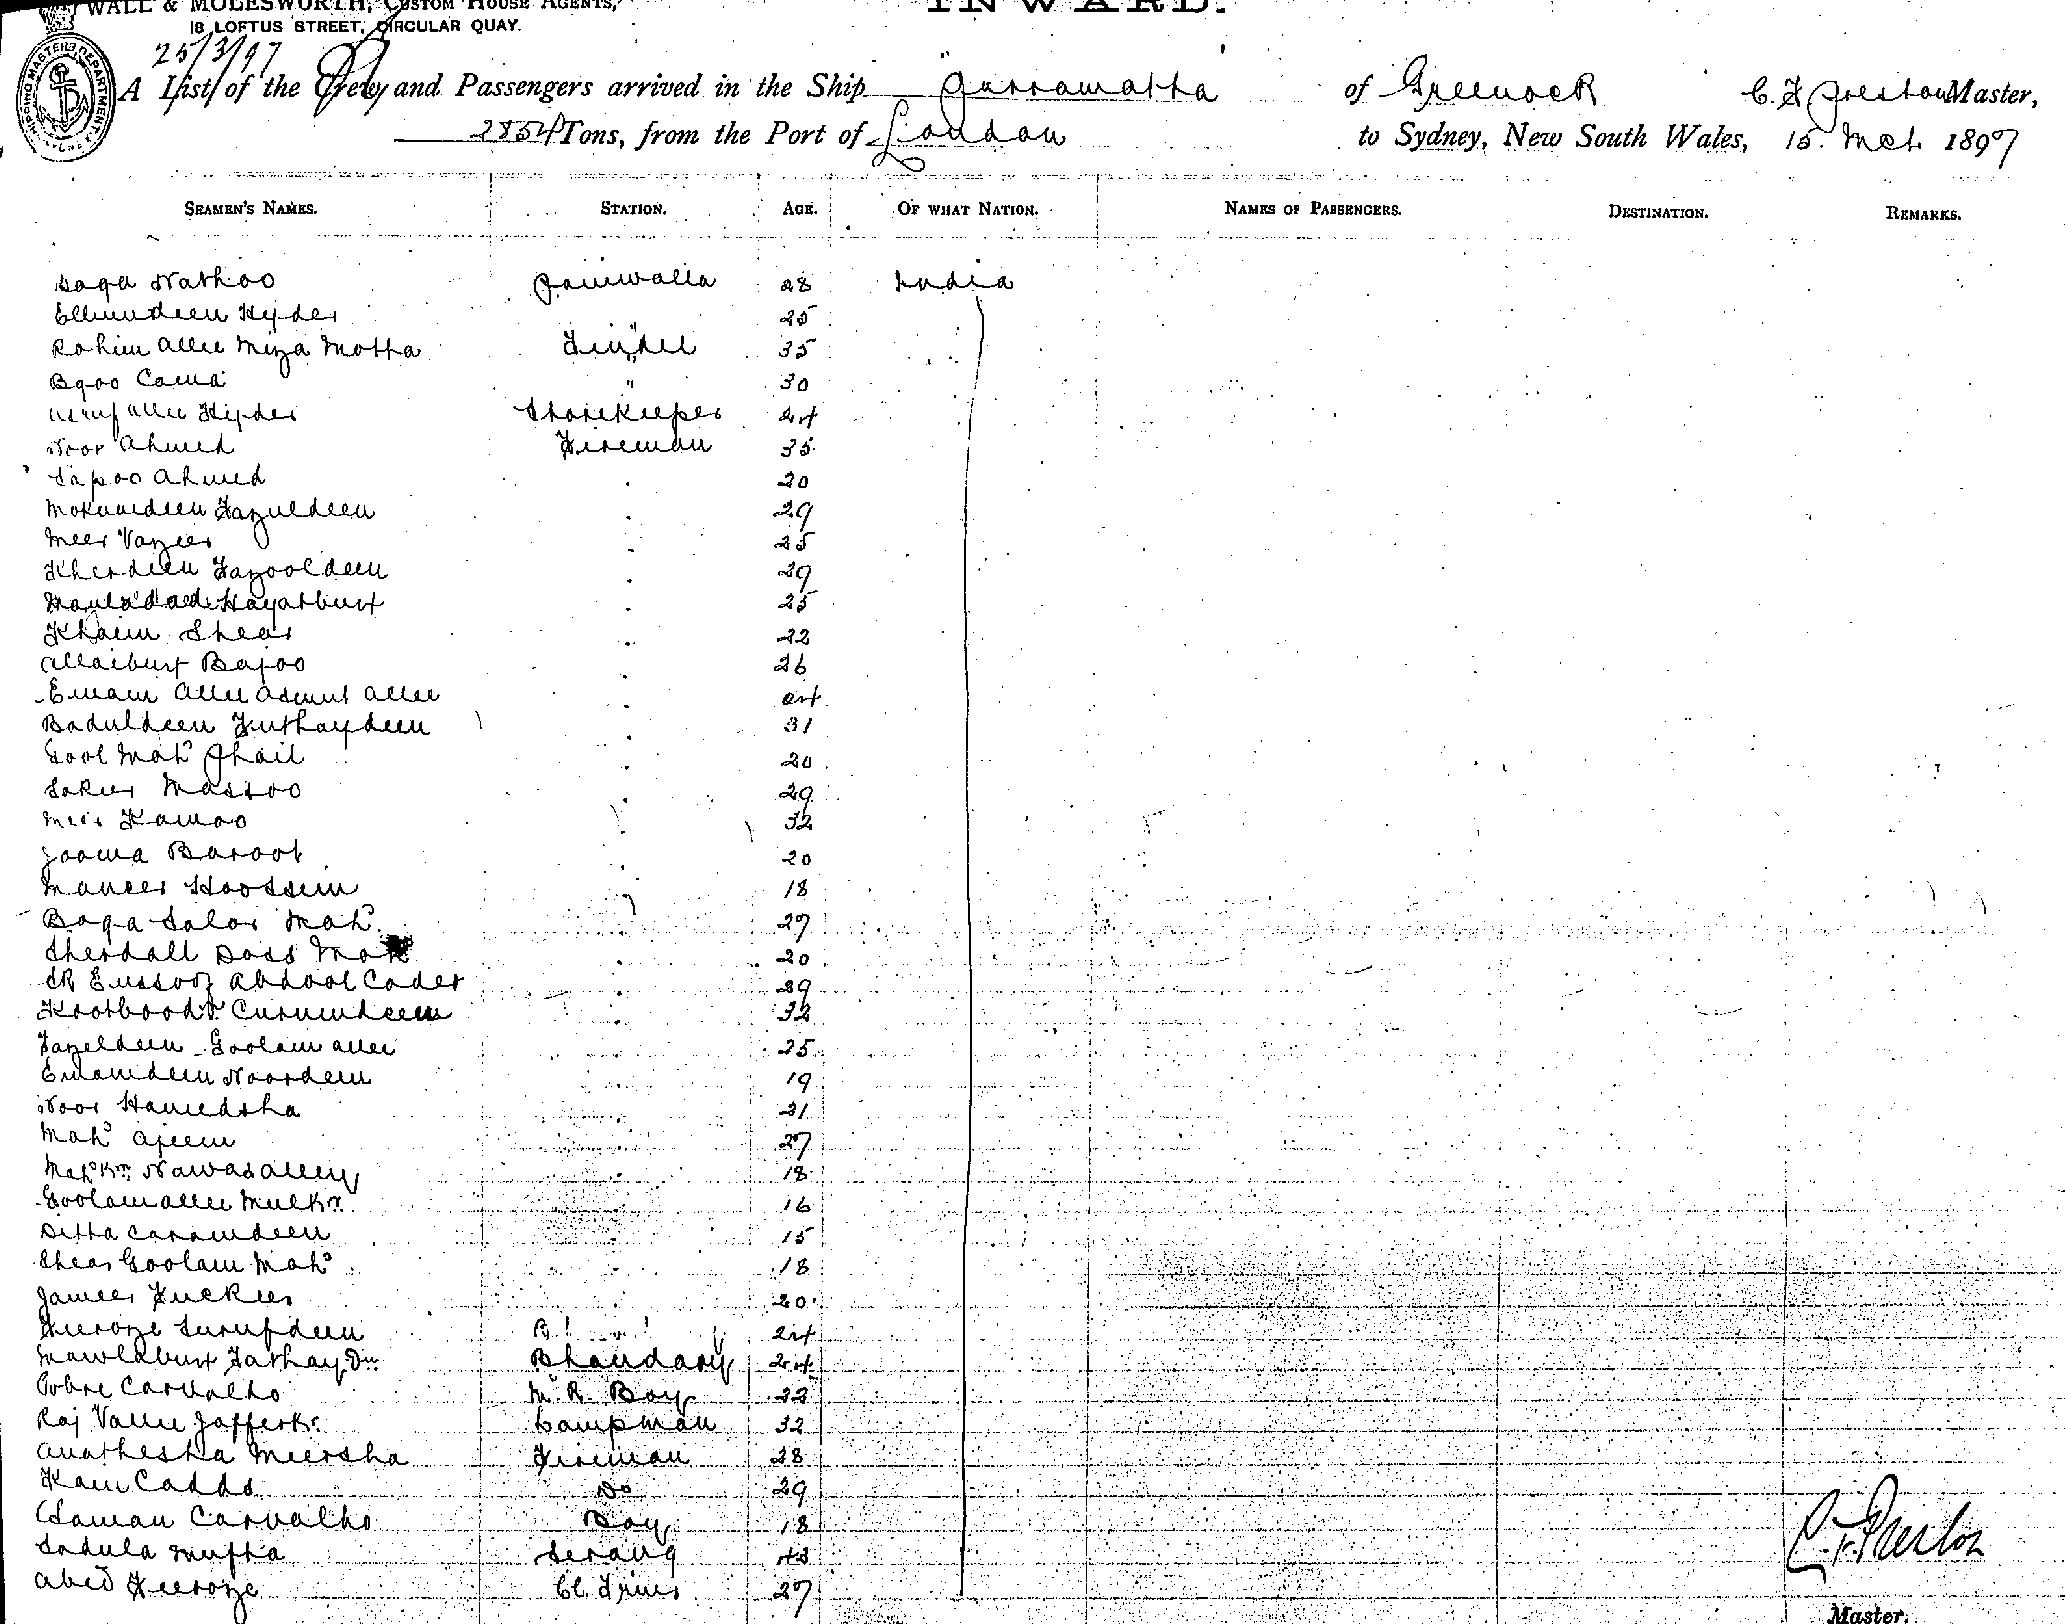 WALL & MOLESWORTH, CUSTOM HOUSE AGENTS,
INWARD.
18 LOFTUS STREET, CIRCULAR QUAY.
25/3/97
SHIPPING MASTER'S DEPARTMENT
A List of the Crew and Passengers arrived in the Ship "Parramatta" of Greenock C. F. Preston Master,
2854 Tons, from the Port of London to Sydney, New South Wales, 15. Mch 1897
SEAMEN'S NAMES. STATION. AGE. OF WHAT NATION. NAMES OF PASSENGERS. DESTINATION. REMARKS.
Daga Nathoo Paniwalla 28 India
Ellumdeen Hyder " 25
Rahim Allee Miza Motha Tindel 35
Bqoo Cama " 30
Allee Hyder Storekeeper 24
Noor Ahmed Fireman 35
Sapoo Ahmed 20
Mokumdeen Fazuldeen 29
Meer Vazeer 25
Kherdeen Fazooldeen 29
Mouladad Hayatbux 25
Khaim Shear 22
Allaibux Bajoo 26
Emam Allee Asmut Allee 24
Baduldeen Futhaydeen 31
Gool Mahd Phail 20
Fakir Massoo 29
Meer Kamoo 32
Jooma Baroot 20
Maneer Hoossein 18
Baga Salor Mahd 27
Sherdall Doss Mah 20
Sk Eussoof Abdool Cader 39
Kootbood Curumdeen 32
Fazeldeen Goolam Allee 25
Emamdeen Noordeen 19
Noor Hamedsha 21
Mahd Ajeem 27
Mahd Kn Nawasalley 18
Goolam Allee Mulkn 16
Ditta Caramdeen 15
Shear Goolam Mahd 18
Jameer Fuckeer 20
Feeroze Surufdeen 24
Mowldbux Fathay Dn Bhandary 24
Pobre Carvalho M. R. Boy 22
Raj Vallee Jafferkn Lampman 32
Anathesha Meersha Fireman 28
Kam Cadds Do 29
Carvalho Boy 18
Sadula Muftha Serang 43
Abed Feeroze Cl Trimr 27
C. F. Preston
Master.